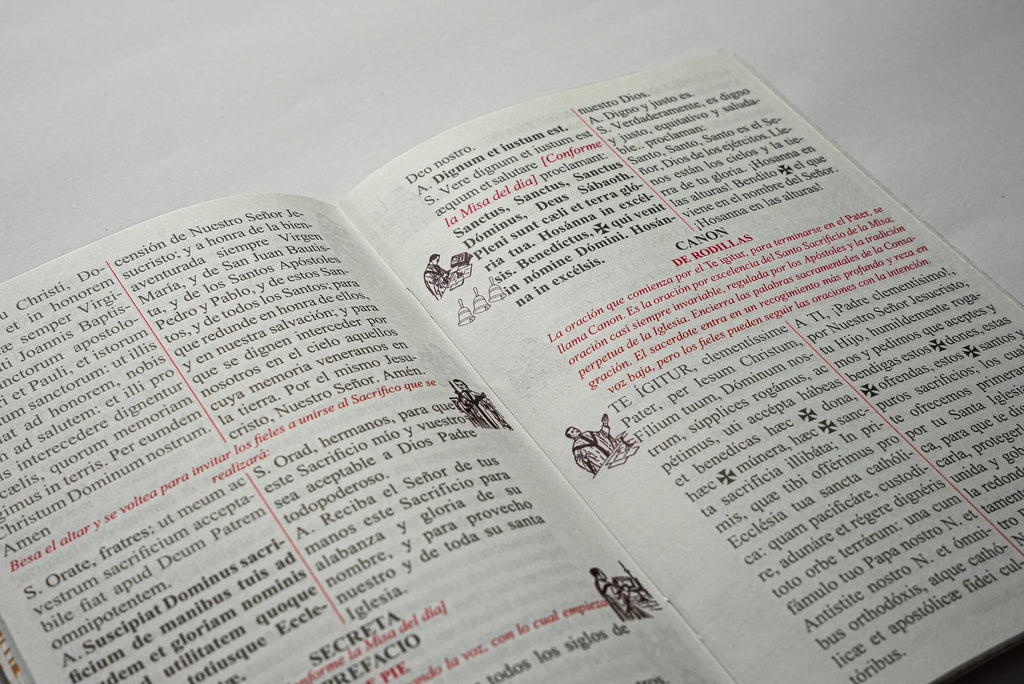 Christi. Do-
et in honorem
semper Virgi-
Joannis Baptis-
nctorum apostolo-
et Pauli, et istorum
um sanctorum: ut illis
ad honorem, nobis
ad salutem: et illi pro
intercedere dignentur
cælis, quorum memoriam
gimus in terris. Per eumdem
hristum Dominum nostrum
Amen
censión de Nuestro Señor Je-
sucristo; y a honra de la bien-
aventurada siempre Virgen
María, y de San Juan Bautis-
ta, y de los Santos Apóstoles
Pedro y Pablo, y de estos San-
tos, y de todos los Santos; para
que redunde en honra de ellos,
y en nuestra salvación; y para
que se dignen interceder por
nosotros en el cielo aquellos
cuya memoria veneramos en
la tierra. Por el mismo Jesu-
cristo, Nuestro Señor. Amén.
Besa el altar y se voltea para invitar los fieles a unirse al Sacrifico que se
realizará:
S. Orate, fratres: ut meum ac
vestrum sacrificium accepta-
bile fiat apud Deum Patrem
omnipotentem.
A. Suscipiat Dominus sacri-
ficium de manibus tuis ad
em et gloriam nominis
d utilitatem quoque
totiusque Eccle-
S. Orad, hermanos, para que
este Sacrificio mío y vuestro
sea aceptable a Dios Padre
todopoderoso.
A. Reciba el Señor de tus
manos este Sacrificio para
alabanza y gloria de su
nombre, y para provecho
nuestro y de toda su santa
Iglesia.
SECRETA
onforme la Misa del día]
REFACIO
E PIE
ando la voz, con lo cual empieza
todos los siglos de
Deo nostro.
A. Dignum et iustum est.
S. Vere dignum et iustum est
æquum et salutare [Conforme
la Misa del día] proclamant:
Sanctus, Sanctus, Sanctus
Dóminus, Deus Sábaoth.
Pleni sunt cæli et terra gló-
ria tua. Hosánna in excél-
sis. Benedictus, ✠ qui venit
in nómine Dómini. Hosán-
na in excélsis.
nuestro Dios.
A. Digno y justo es.
S. Verdaderamente, es digno
y justo, equitativo y saluda-
ble... proclaman:
Santo, Santo, Santo es el Se-
ñor Dios de los ejércitos. Lle-
nos están los cielos y la tie-
rra de tu gloria. ¡Hosanna en
las alturas! Bendito ✠ el que
viene en el nombre del Señor.
¡Hosanna en las alturas!
CANON
DE RODILLAS
La oración que comienza por el Te igitur, para terminarse en el Pater, se
llama Canon. Es la oración por excelencia del Santo Sacrificio de la Misa:
oración casi siempre invariable, regulada por los Apóstoles y la tradición
perpetua de la Iglesia. Encierra las palabras sacramentales de la Consa-
gración. El sacerdote entra en un recogimiento más profundo y reza en
voz baja, pero los fieles pueden seguir las oraciones con la intención.
TE, IGITUR, clementíssime
Pater, per Iesum Christum,
Fílium tuum, Dominum nos-
trum, súpplices rogámus, ac
pétimus, uti accépta hábeas
et benedícas hæc ✠ dona,
hæc ✠ múnera, hæc ✠ sanc-
ta sacrifícia illibáta; In pri-
mis, quæ tibi offérimus pro
Ecclésia tua sancta cathóli-
ca: quam pacificáre, custodí-
re, adunáre et régere dignéris
toto orbe terrárum: una cum
fámulo tuo Papa nostro N. et
Antístite nostro N. et ómni-
bus orthodóxis, atque cathó-
licæ et apostólicæ fidei cul-
tóribus.
A TI, ¡Padre clementísimo!,
por Nuestro Señor Jesucristo,
tu Hijo, humildemente roga-
mos y pedimos que aceptes y
bendigas estos ✠ dones, estas
✠ ofrendas, estos ✠ santos y
puros sacrificios;
te ofrecemos primera
por tu Santa Iglesia
ca, para que te
ciarla, protegerla
unida, y gob
la redond
tamente
N